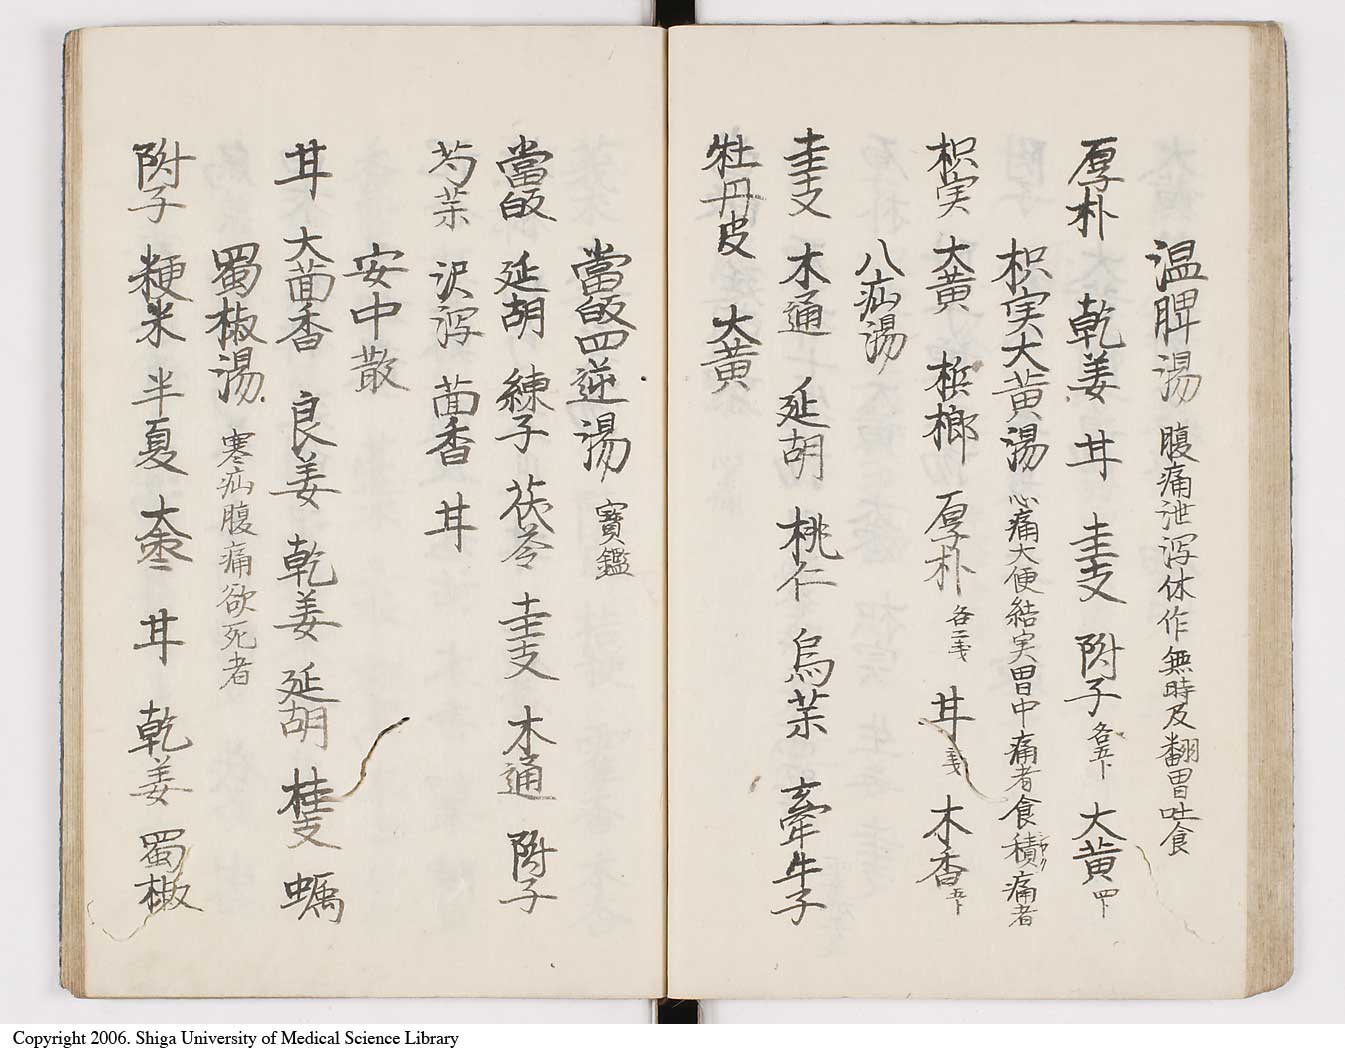 温脾湯 腹痛泄瀉休作無時及翻胃吐食
厚朴 乾姜 甘 圭支 附子 各五卜 大黄 四卜
枳実大黄湯 心痛大便結実胃中痛者食積痛者
枳実 大黄 梹榔 厚朴 各二戋 甘 三戋 木香 五卜
八疝湯
圭支 木通 延胡 桃仁 烏薬 牽牛子
牡丹皮 大黄
當皈四逆湯 寳鑑
當皈 延胡 練子 茯苓 圭支 木通 附子
芍薬 沢瀉 茴香 甘
安中散
甘 大茴香 良姜 乾姜 延胡 桂支 蠣
蜀椒湯 寒疝腹痛欲死者
附子 粳米 半夏 大棗 甘 乾姜 蜀椒
Copyright 2006. Shiga University of Medical Science Library